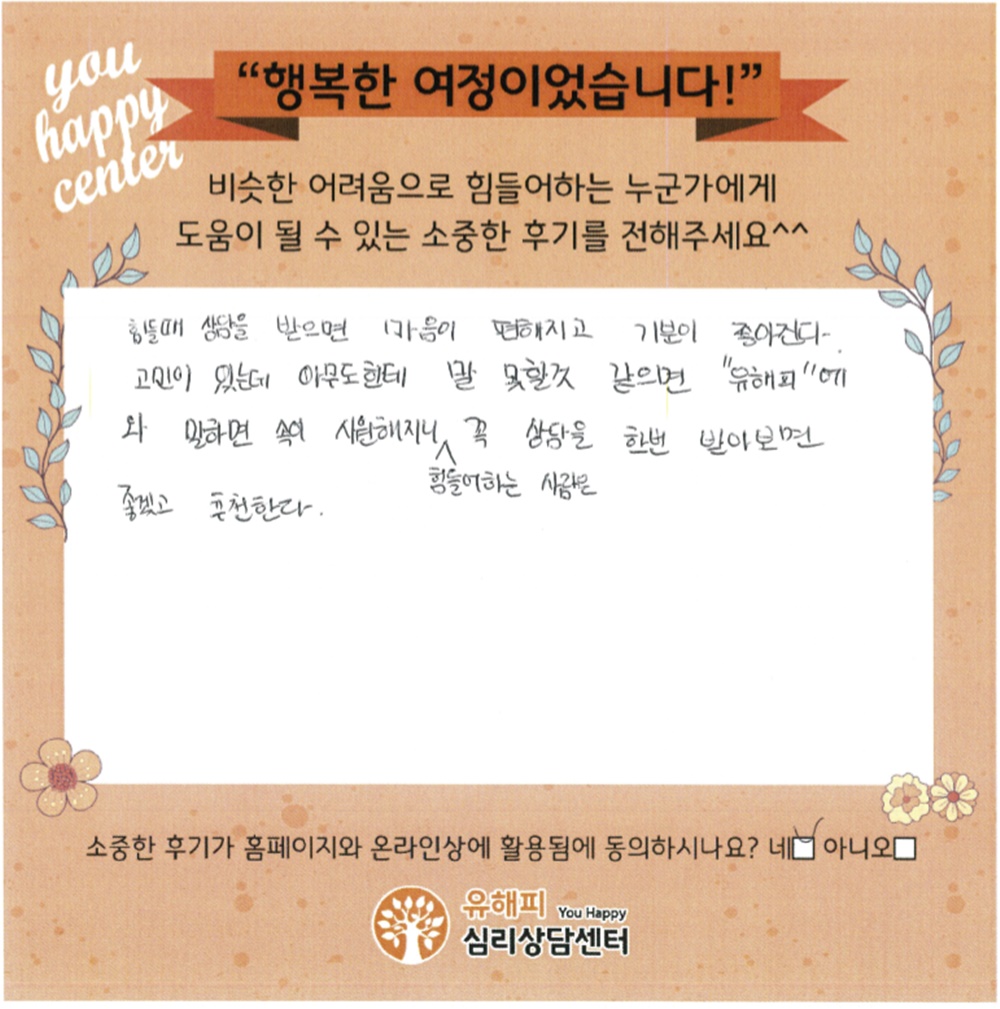 you
happy
center
“행복한 여정이었습니다!”
비슷한 어려움으로 힘들어하는 누군가에게
도움이 될 수 있는 소중한 후기를 전해주세요^^
힘들때 상담을 받으면 마음이 편해지고 기분이 좋아진다.
고민이 있는데 아무도한테 말 못할것 같으면 "유해피"에
와 말하면 속이 시원해지니 꼭 상담을 한번 받아보면
힘들어하는 사람은
좋겠고 추천한다.
소중한 후기가 홈페이지와 온라인상에 활용됨에 동의하시나요? 네 아니오
유해피 You Happy
심리상담센터